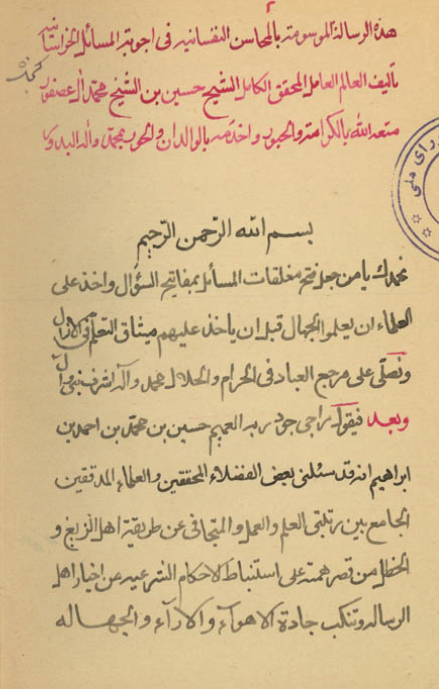 هذه الرسالة الموسومة بالمحاسن النفسانيه في اجوبة المسائل الخراسانيه
تأليف العالم العامل المحقق الكامل الشيخ حسين بن الشيخ محمد آل عصفور
متعه الله بالكرامة والحبور واخدمه بالولدان والحور بمحمد وآله البدور
بسم الله الرحمن الرحيم
نحمدك يا من جعل فتح مغلقات المسائل بمفاتيح السؤال واخذ على
العلماء ان يعلموا الجهال قبل ان ياخذ عليهم ميثاق التعلم في الازل
ونصلي على مرجع العباد في الحرام والحلال محمد وآله اشرف نبي وآل
وبعد فيقول راجي جود ربه العميم حسين بن محمد بن احمد بن
ابراهيم انه قد سئلني بعض الفضلاء المحققين والعلماء المدققين
الجامع بين رتبتي العلم والعمل والمتجافي عن طريقة اهل الزيغ و
الخطل من قصر همته على استنباط الاحكام الشرعيه من اخبار اهل
الرساله وتنكب جادة الاهوآء والارآء والجهاله
راى ملى